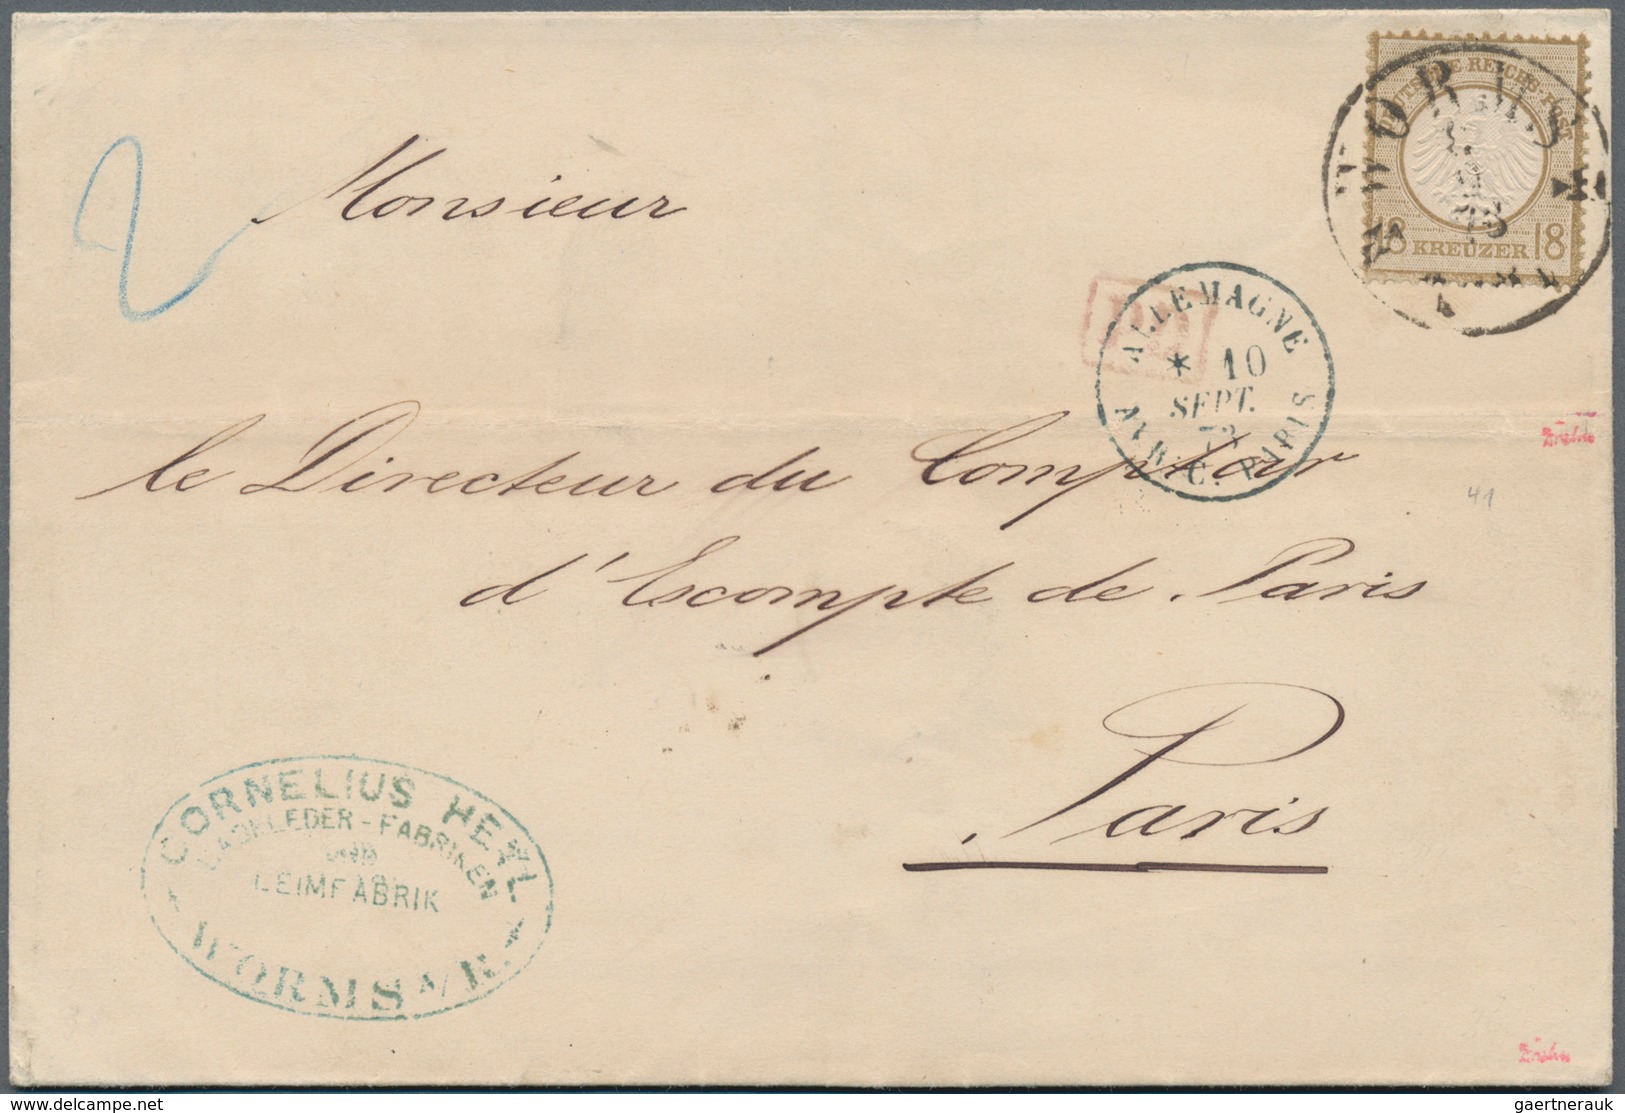 2
Monsieur
le Directeur du Comptoir
d'Escompte de Paris
Paris
DEUTSCHE REICHS-POST
18 KREUZER 18
WORMS
PD
ALLEMAGNE
* 10
SEPT.
73
AVR. C. PARIS
41
CORNELIUS HEYL
LACKLEDER-FABRIKEN
UND
LEIMFABRIK
WORMS A/R.
delcampe.net
gaertnerauk